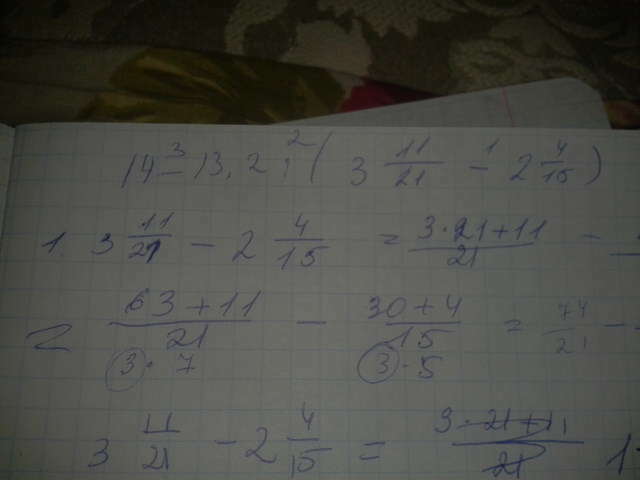 3 2 1
14 - 13,2 : ( 3 11/21 - 2 4/15 )
1. 3 11/21 - 2 4/15 = 3·21+11/21 -
= 63+11/21 - 30+4/15 = 74/21 -
3·7 3·5
3 11/21 - 2 4/15 = 3·21+11/21